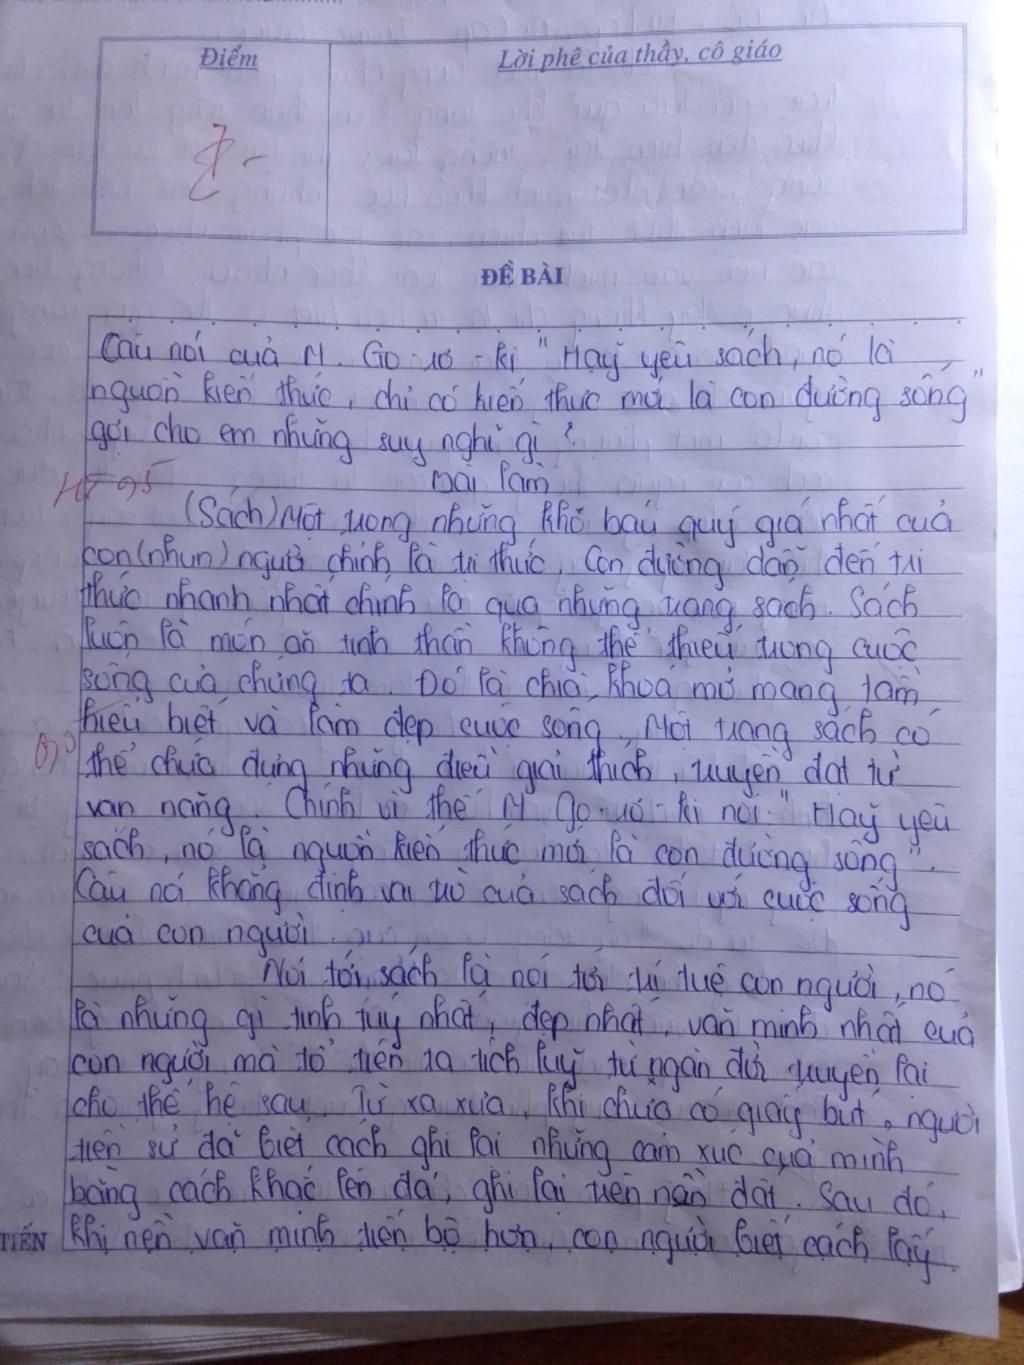 Điểm
Lời phê của thầy, cô giáo
ĐỀ BÀI
Câu nói của M. Go-rơ-ki "Hãy yêu sách, nó là
nguồn kiến thức, chỉ có kiến thức mới là con đường sống"
gợi cho em những suy nghĩ gì?
Bài làm
(Sách) Một trong những kho báu quý giá nhất của
con (nhưn) người chính là tri thức. Con đường dẫn đến tri
thức nhanh nhất chính là qua những trang sách. Sách
luôn là món ăn tinh thần không thể thiếu trong cuộc
sống của chúng ta. Đó là chìa khóa mở mang tầm
hiểu biết và làm đẹp cuộc sống. Một trang sách có
thể chứa đựng những điều giải thích, truyền đạt từ
vạn năng. Chính vì thế M Go-rơ-ki nói: "Hãy yêu
sách, nó là nguồn kiến thức mới là con đường sống".
Câu nói khẳng định vai trò của sách đối với cuộc sống
của con người.
Nói tới sách là nói tới trí tuệ con người, nó
là những gì tinh túy nhất, đẹp nhất, văn minh nhất của
con người mà tổ tiên ta tích luỹ từ ngàn đời truyền lại
cho thế hệ sau. Từ xa xưa, khi chưa có giấy bút, người
tiền sử đã biết cách ghi lại những cảm xúc của mình
bằng cách khắc lên đá, ghi lại trên nền đất. Sau đó,
khi nền văn minh tiến bộ hơn, con người biết cách lấy
TIẾN